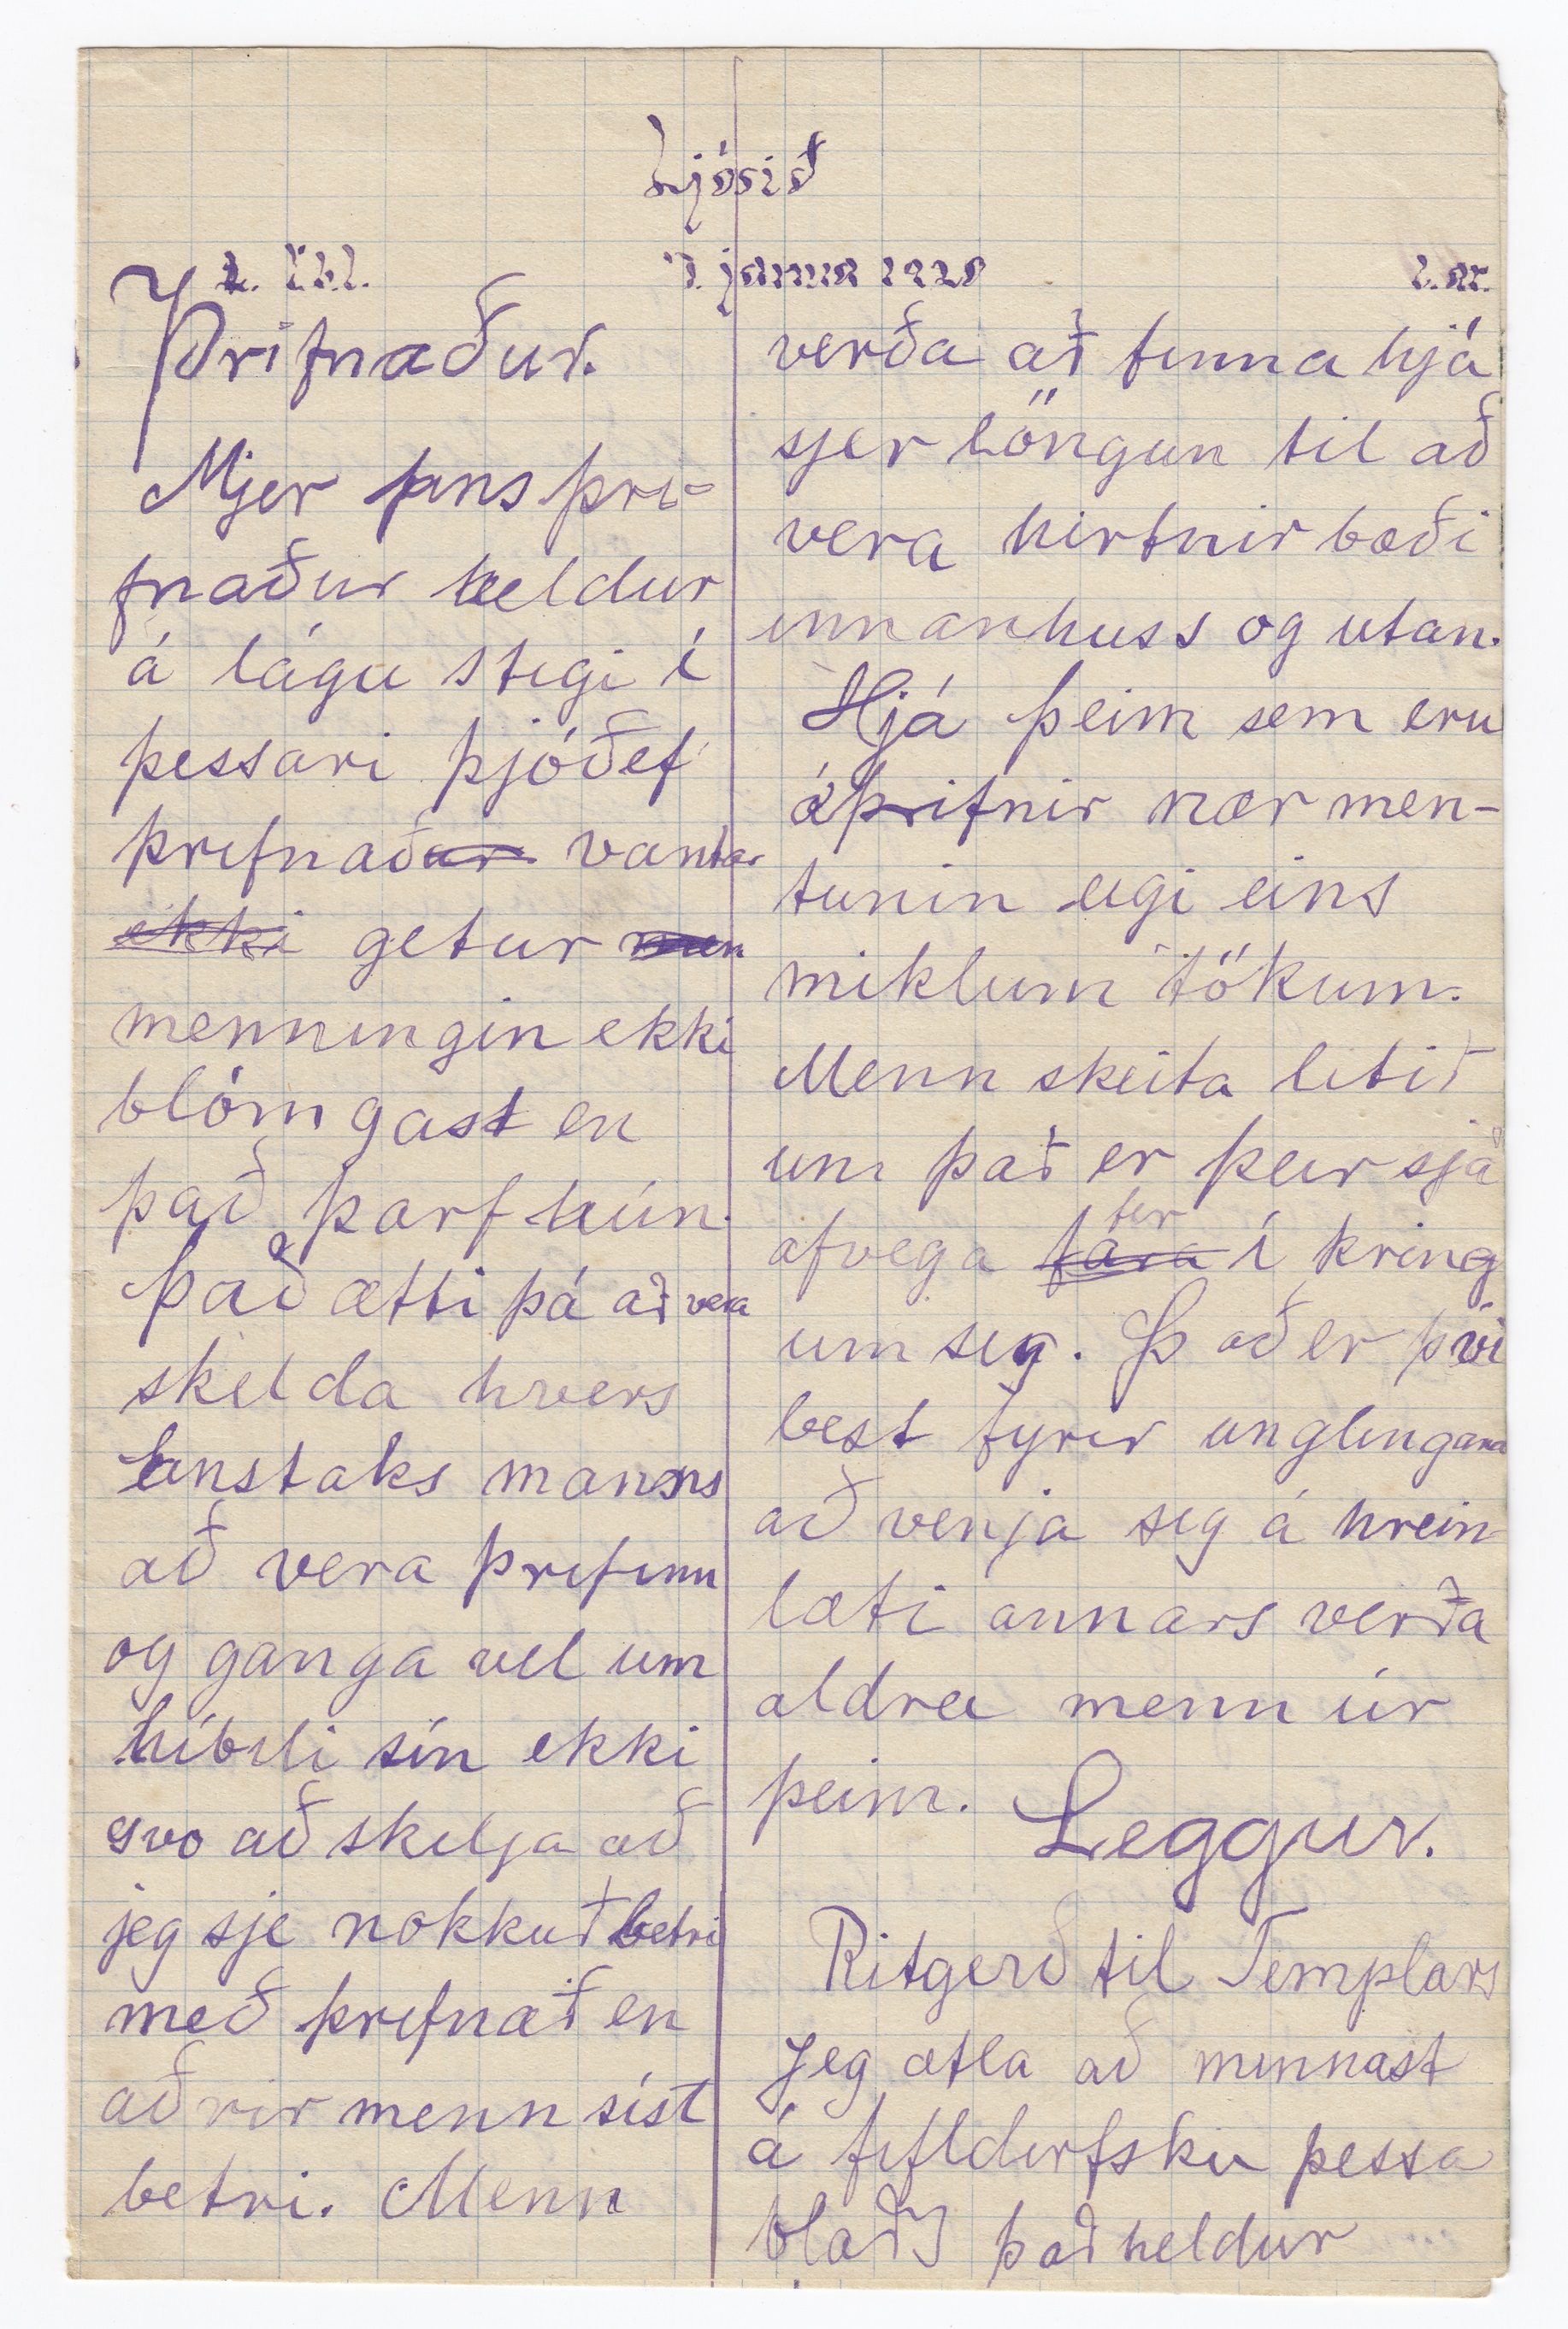 Ljósið
1. tbl.
7. janua 1228
1. ár.
Þrifnaður.
Mjer fans þri-
fnaður heldur
á lágu stigi í
þessari þjóð ef
þrifnaður vantar
ekki getur men
menningin ekki
blómgast en
það þarf hún.
Það ætti þá að vera
skilda hvers
einstaks manns
að vera þrifinn
og ganga vel um
híbili sín ekki
svo að skilja að
jeg sje nokkuð betri
með þrifnað en
aðrir menn síst
betri. Menn
verða að finna hjá
sjer löngun til að
vera hirtnir bæði
innanhuss og utan.
Hjá þeim sem eru
óþrifnir nær men-
tunin eigi eins
miklum tökum.
Menn skeita litið
um það er þeir sjá
afvega fára fer í kring
um sig. Það er því
best fyrir unglingana
að venja sig á hrein
læti annars verða
aldrei menn úr
þeim.
Leggur.
Ritgerð til Templars
Jeg ætla að minnast
á fifldirfsku þessa
blaðs það heldur